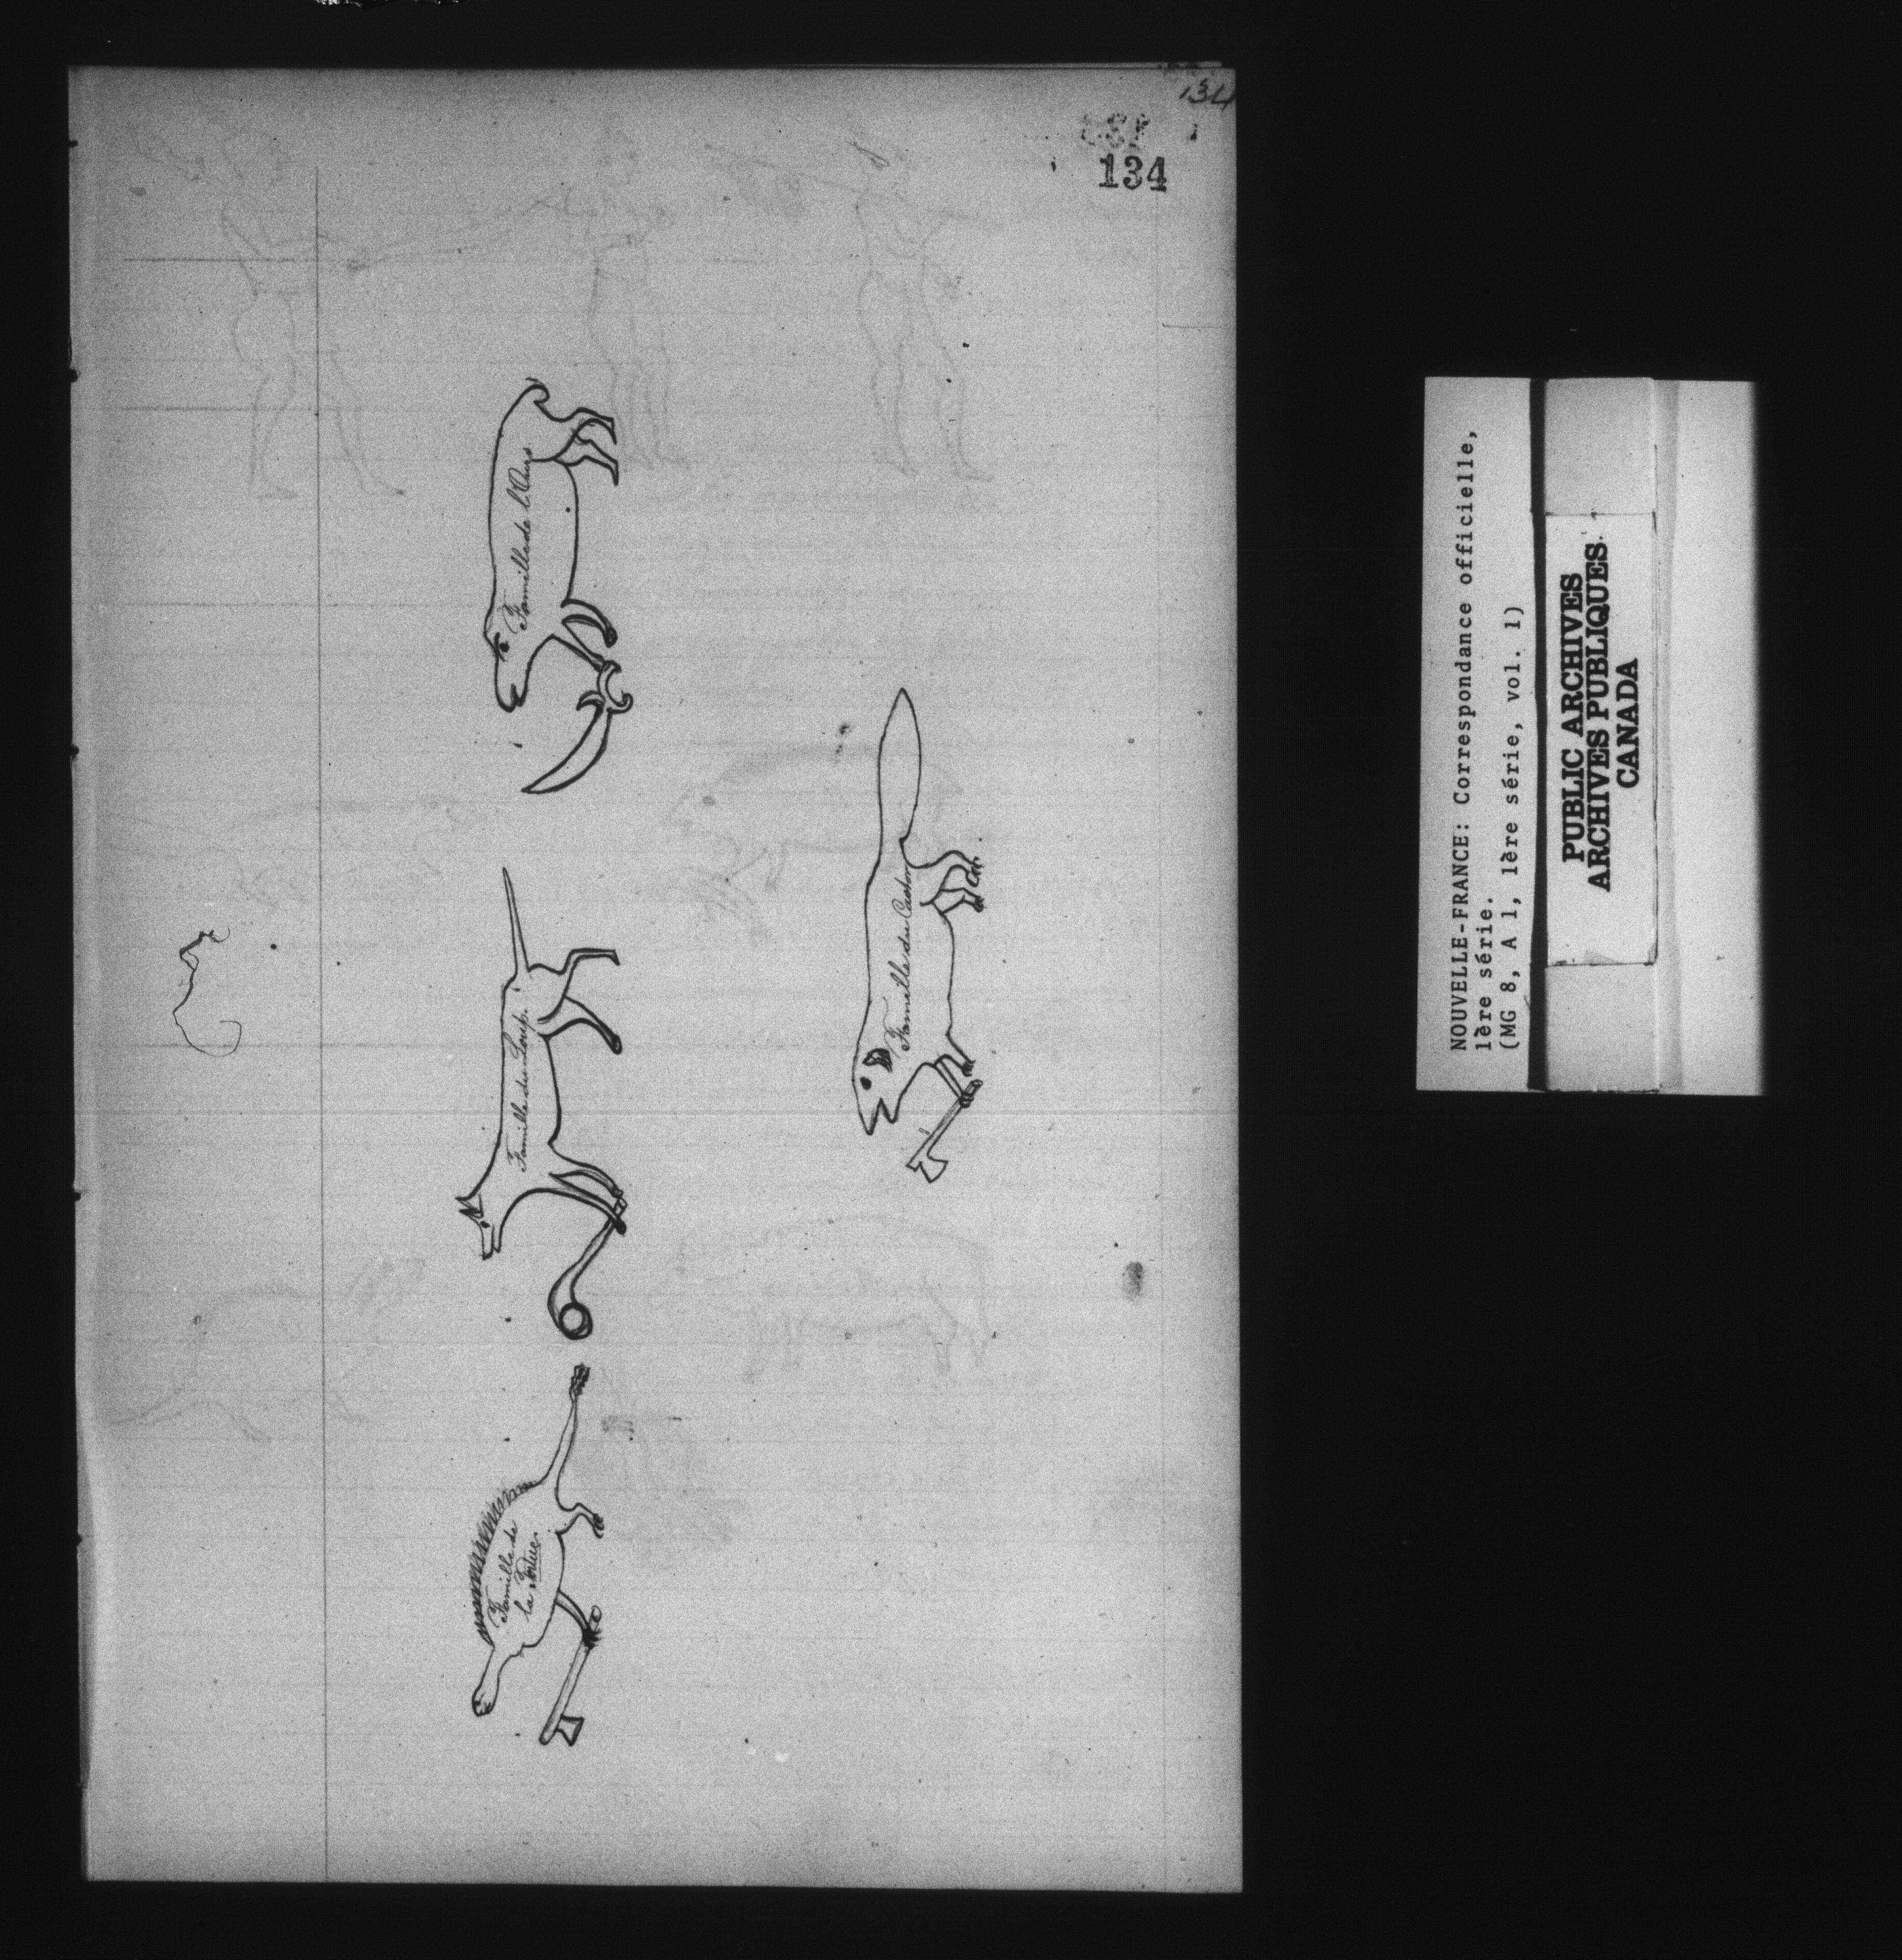 134
134
Famille de
la Tortue.
Famille du Loup.
Famille de l'Ours
Famille du Castor
NOUVELLE-FRANCE: Correspondance officielle,
1ère série.
(MG 8, A 1, 1ère série, vol. 1)
PUBLIC ARCHIVES
ARCHIVES PUBLIQUES
CANADA